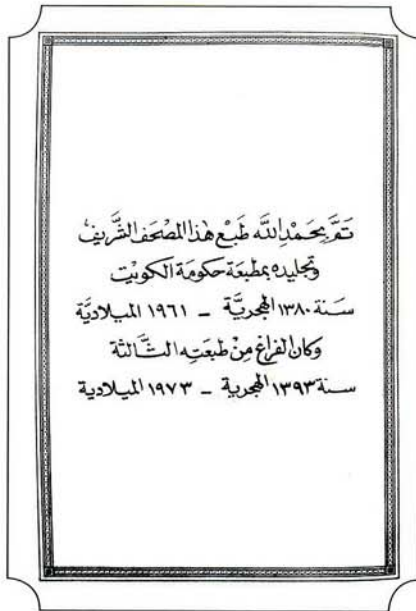 تَمَّ بِحَمْدِ اللَّه طَبْع هٰذَا المصْحَف الشَّرِيفْ
وتجليده بمطبعَة حكومَة الكويْت
سَنة ١٣٨٠ الهِجريَّة - ١٩٦١ الميلاديَّة
وكان الفراغ مِنْ طبعَتِه الثَّالثة
سنة ١٣٩٣ الهجرية - ١٩٧٣ الميلادية